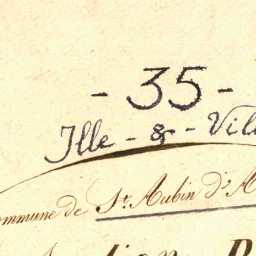 - 35 -
Ille - & - Vil
ommune de St. Aubin d'A